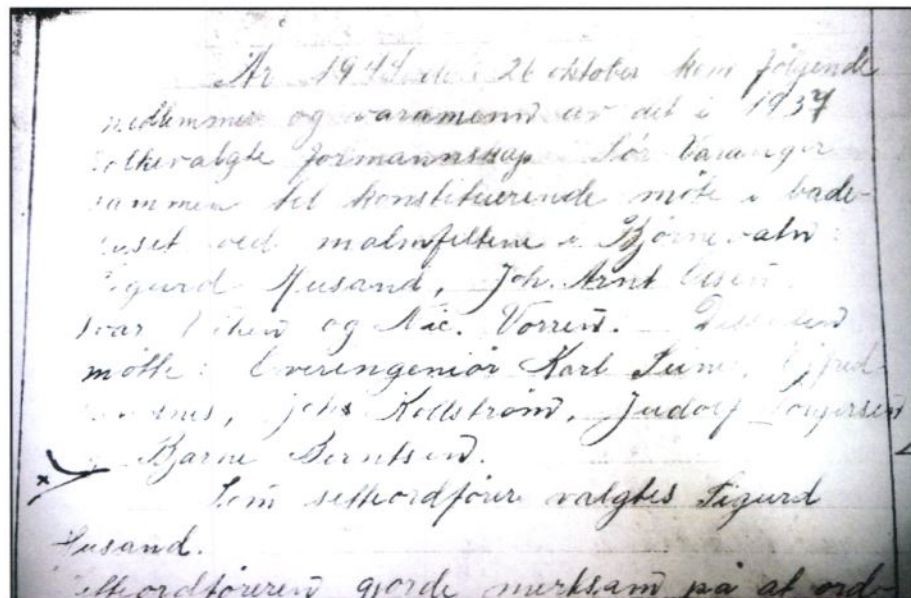 År 1944 den 26 oktober kom følgende
medlemmer og varamenn av det i 1937
folkevalgte formannskap Sør Varanger
sammen til konstituerende møte i bade-
huset ved malmfeltene i Bjørnevatn:
Sigurd Husand, Joh. Arnt Olsen
Ivar og Nic. Vorren. Dessuten
møtte: Overingeniør Karl
Johs Kollstrøm, Judolf
Bjarne Berntsen.
Som setteordfører valgtes Sigurd
Husand.
Setteordføreren gjorde merksam på at ord-